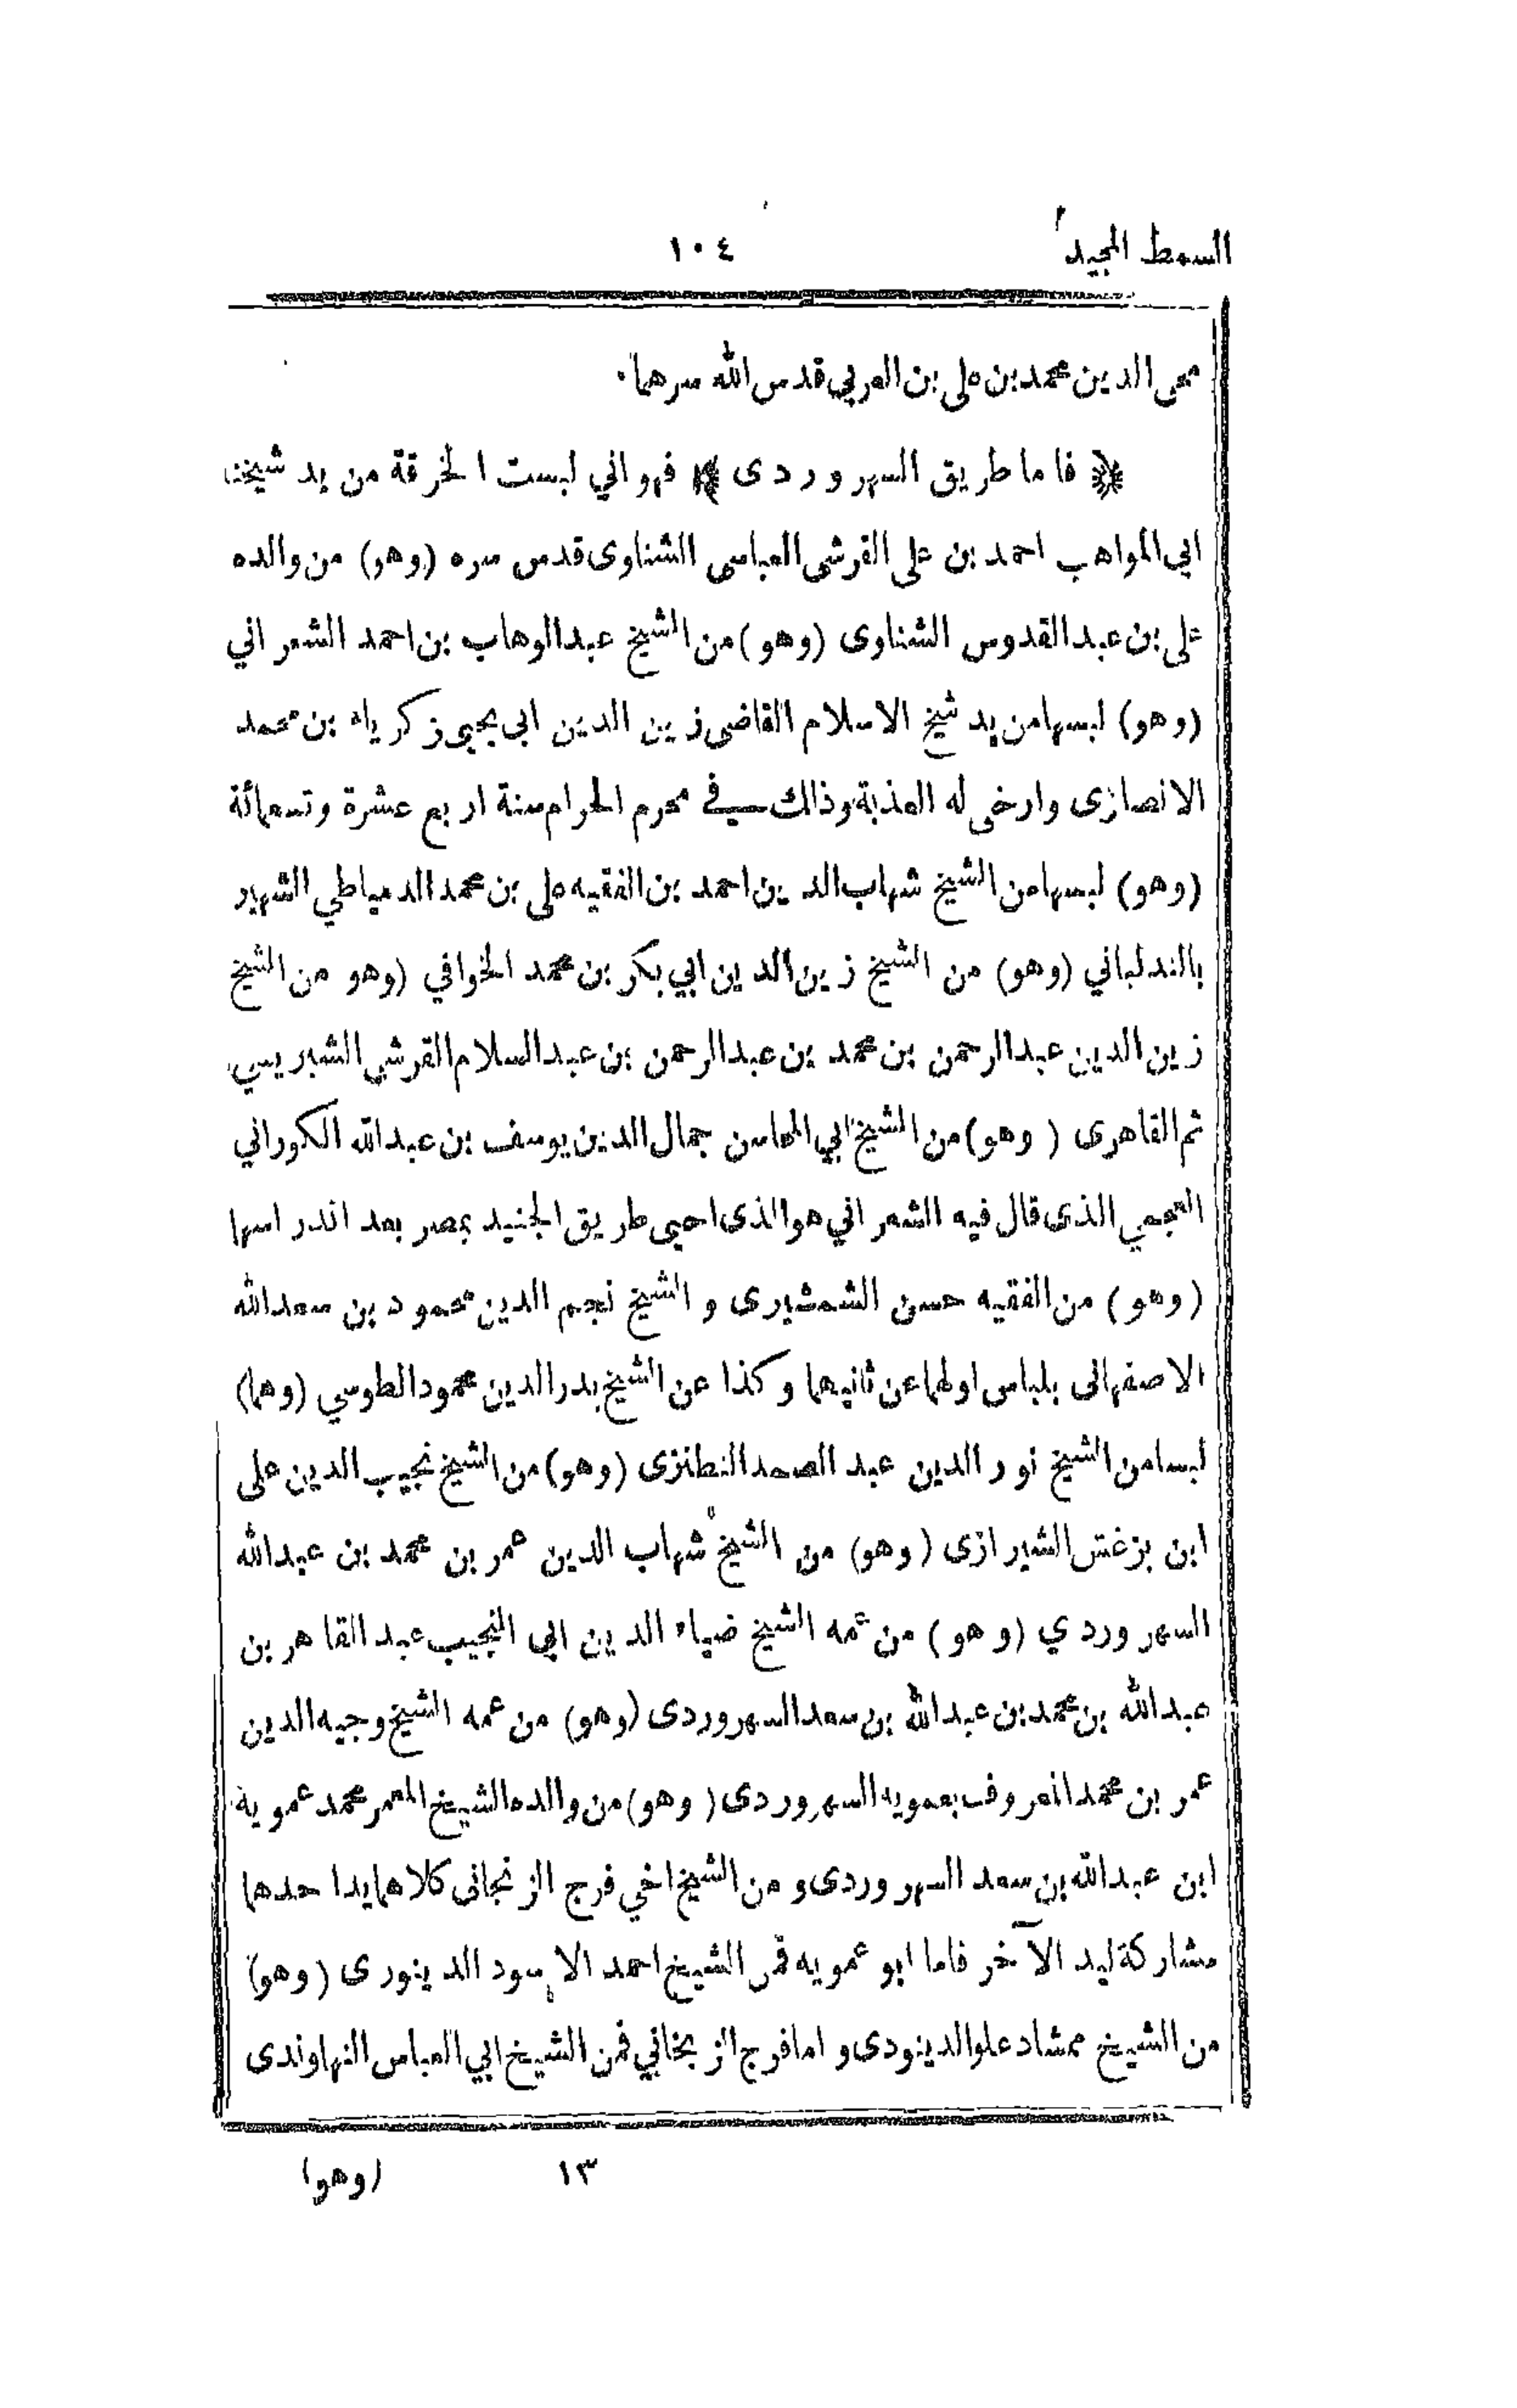 السمط المجيد ١٠٤
محى الدين محمد بن على بن العربي قدس الله سرهما٠
فاما طريق السهروردى فهو اني لبست الخرقة من يد شيخنا
ابي المواهب احمد بن على القرشى العباسى الشناوى قدس سره (وهو) من والده
على بن عبد القدوس الشناوى (وهو) من الشيخ عبد الوهاب بن احمد الشعراني
(وهو) لبسها من يد شيخ الاسلام القاضى زين الدين ابى يحيى زكرياء بن محمد
الانصارى وارخى له العذبة وذالك في محرم الحرام سنة اربع عشرة وتسعمائة
(وهو) لبسها من الشيخ شهاب الدين احمد بن الفقيه على بن محمد الدمياطي الشهير
بالندلباني (وهو) من الشيخ زين الدين ابي بكر بن محمد الخوافي (وهو من الشيخ
زين الدين عبد الرحمن بن محمد بن عبد الرحمن بن عبد السلام القرشى الشبريسي
ثم القاهرى (وهو) من الشيخ ابي المحاسن جمال الدين يوسف بن عبد الله الكوراني
العجمي الذى قال فيه الشعراني هو الذى احيى طريق الجنيد بمصر بعد اندراسها
(وهو) من الفقيه حسن الشمشيرى والشيخ نجم الدين محمود بن سعد الله
الاصفهانى بلباس اولهما عن ثانيهما وكذا عن الشيخ بدر الدين محمود الطوسي (وهما)
لبسا من الشيخ نور الدين عبد الصمد النطنزى (وهو) من الشيخ نجيب الدين على
ابن بزغش الشيرازى (وهو) من الشيخ شهاب الدين عمر بن محمد بن عبد الله
السهروردي (وهو) من عمه الشيخ ضياء الدين ابي النجيب عبد القاهر بن
عبد الله بن محمد بن عبد الله بن سعد السهروردى (وهو) من عمه الشيخ وجيه الدين
عمر بن محمد المعروف بعمويه السهروردى (وهو) من والده الشيخ المعمر محمد عموية
ابن عبد الله بن سعد السهروردى ومن الشيخ اخي فرج الزنجانى كلاهما يد احدهما
مشاركة ليد الآخر فاما ابو عمويه فمن الشيخ احمد الاسود الدينورى (وهو)
من الشيخ ممشاد علو الدينودى واما فرج الزنجاني فمن الشيخ ابي العباس النهاوندى
١٣ (وهو)